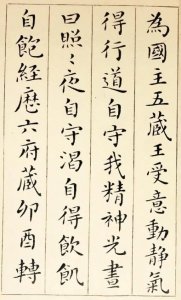 為國主五藏王受意動靜氣
得行道自守我精神光晝
日照〻夜自守渴自得飲飢
自飽経歷六府藏卯酉轉